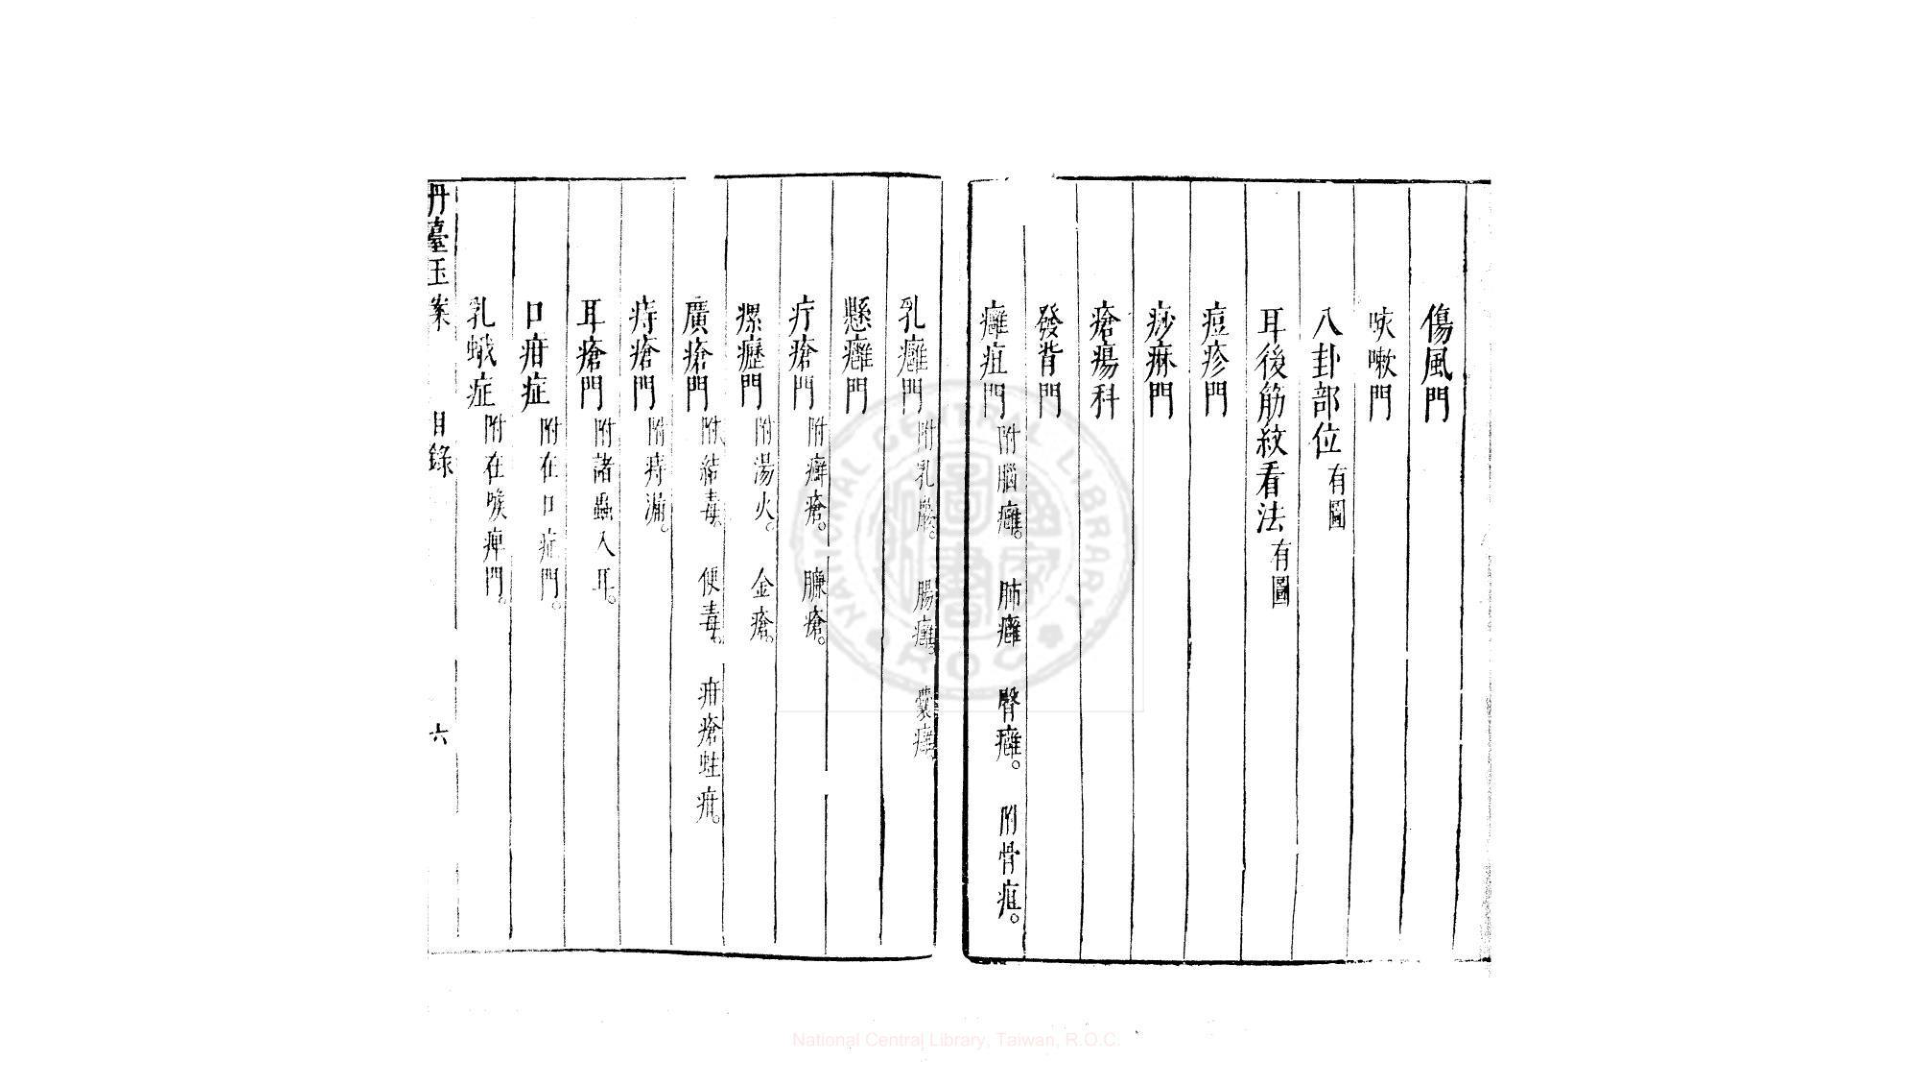 傷風門
咳嗽門
八卦部位 有圖
耳後筋紋看法 有圖
痘疹門
痧麻門
瘡瘍科
發背門
癰疽門 附腦癰。 肺癰 腎癰。 附骨疽。
乳癰門 附乳巖。 腸癰。 囊癰
懸癰門
疔瘡門 附癬瘡。 臁瘡。
瘰癧門 附湯火。 金瘡。
廣瘡門 附結毒 便毒。 疳瘡蛀疳。
痔瘡門 附痔漏。
耳瘡門 附諸蟲入耳。
口疳症 附在口症門。
乳蛾症 附在喉痺門。
丹臺玉案 目錄 六
NATIONAL CENTRAL LIBRARY R.O.C.
National Central Library, Taiwan, R.O.C.